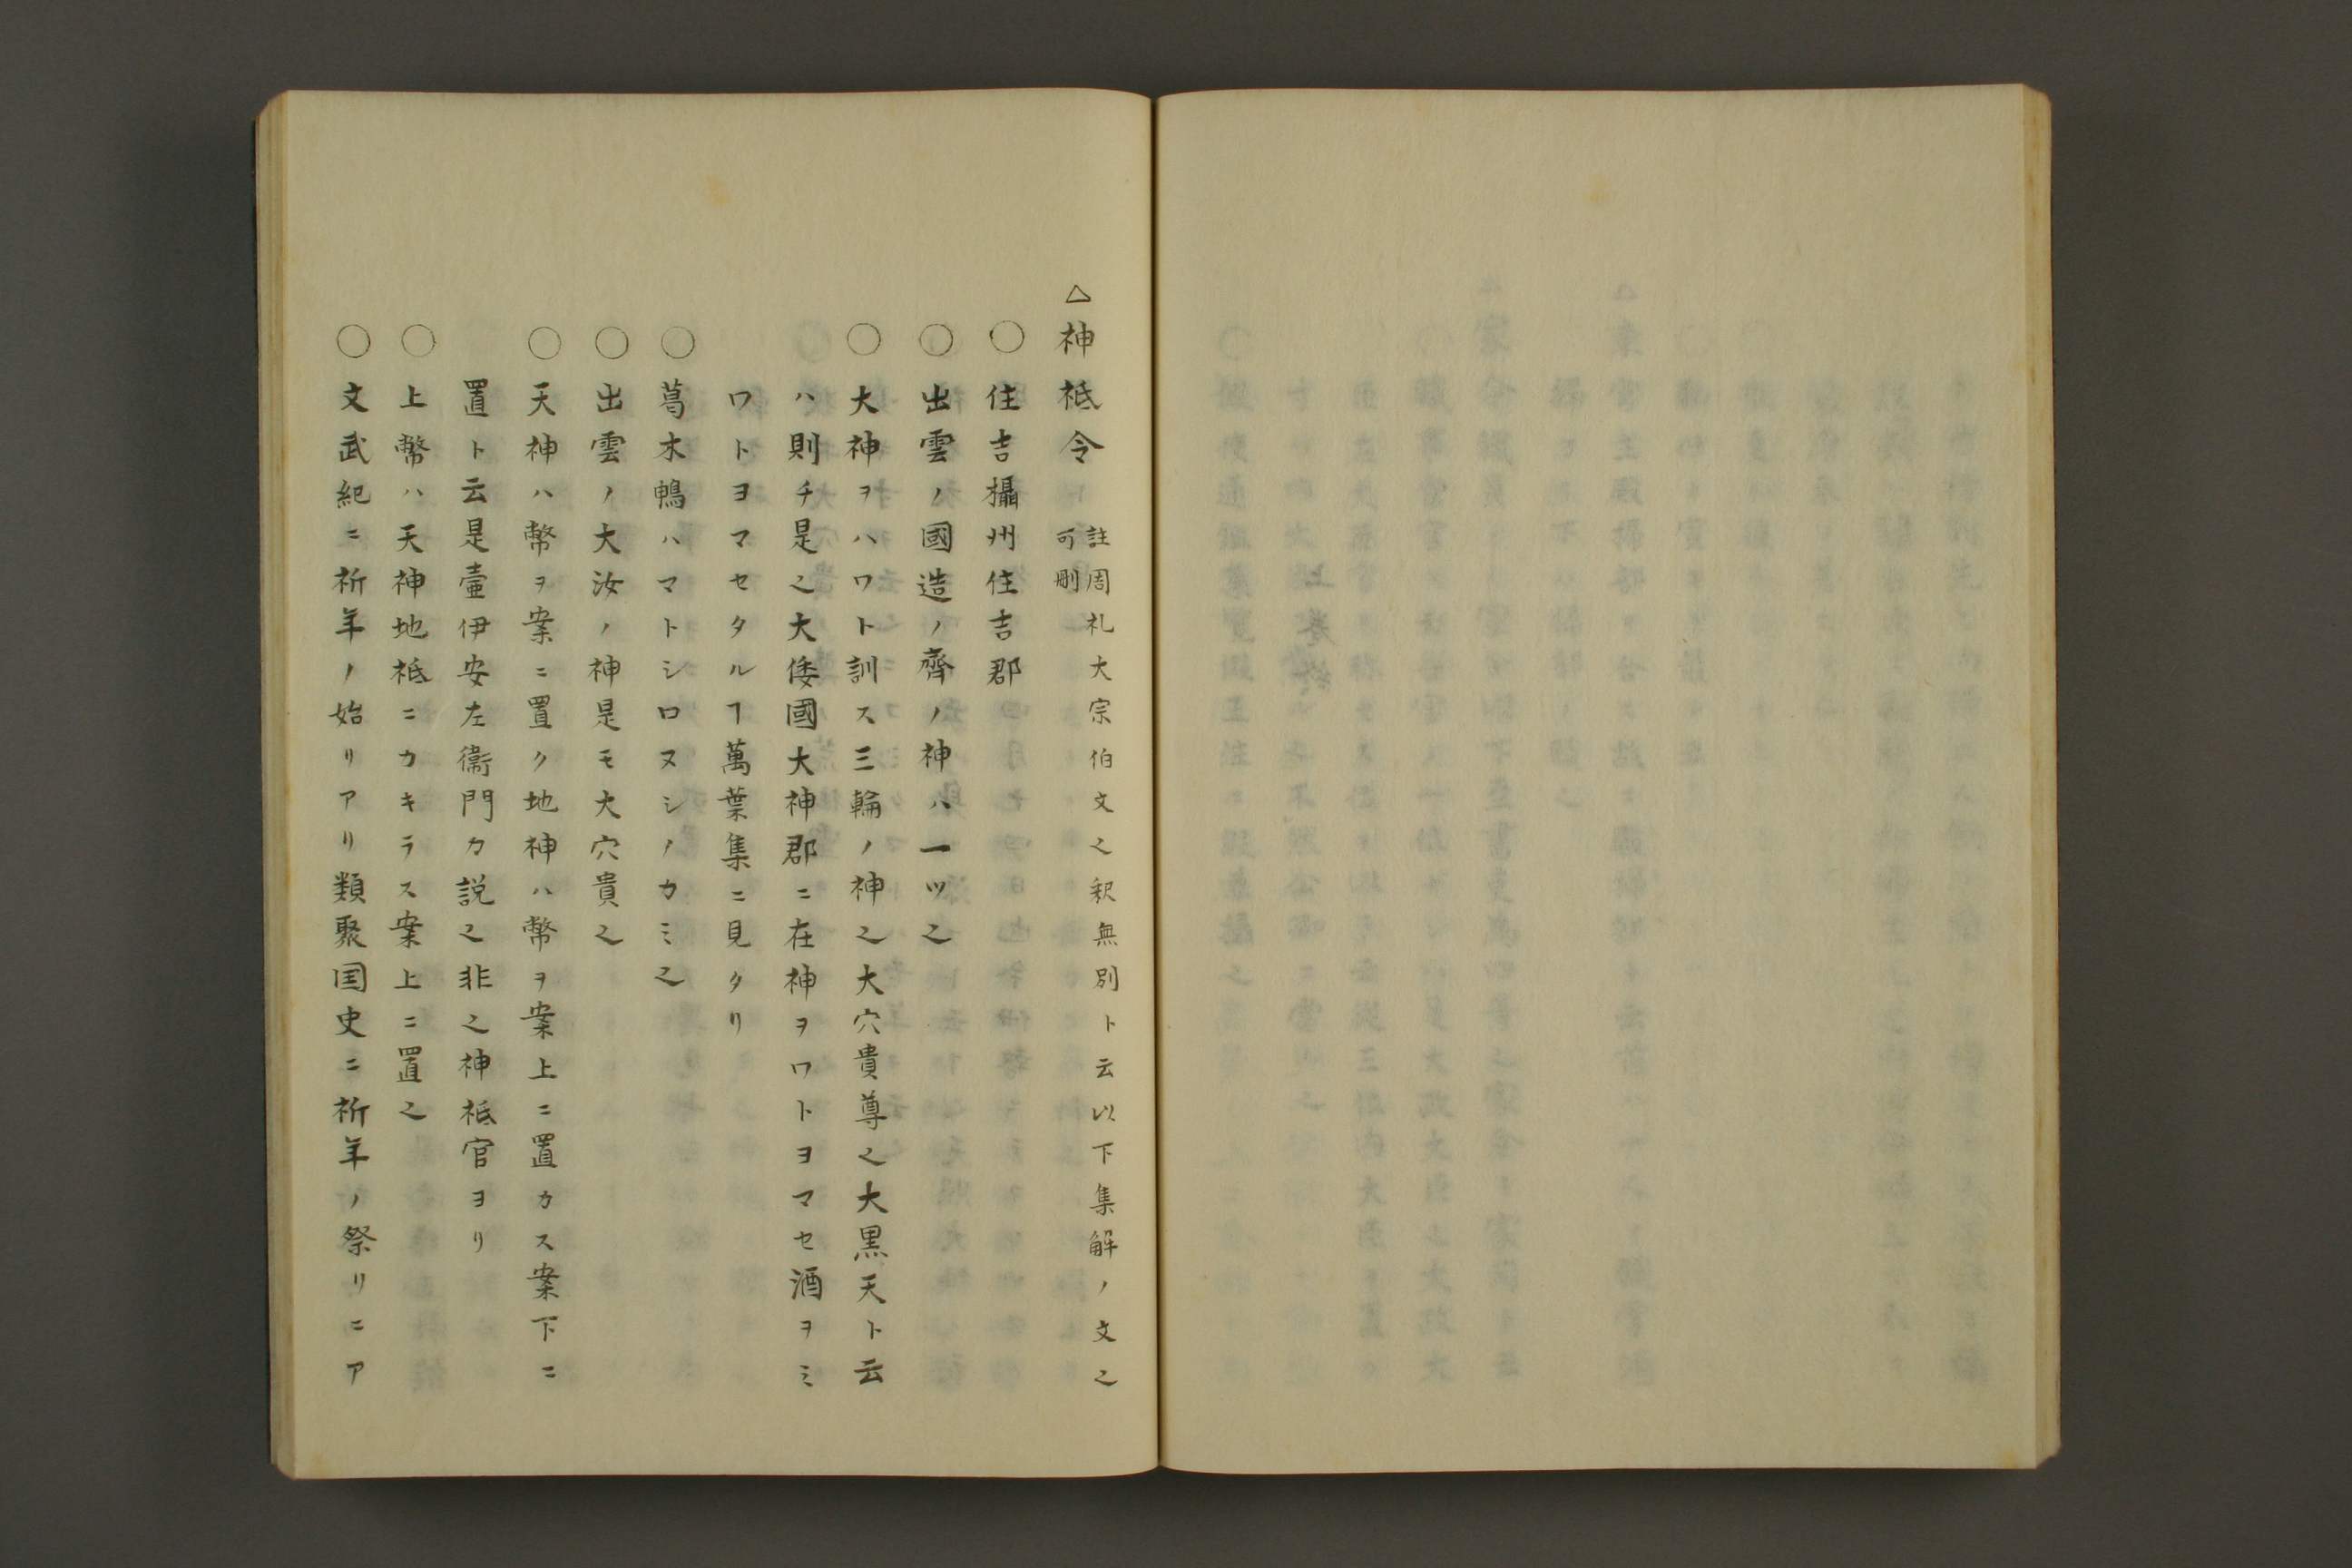 △神祗令 註周礼大宗伯文之釈無別ト云以下集解ノ文之
可刪
○住吉攝州住吉郡
○出雲ノ國造ノ齊ノ神ハ一ツ之
○大神ヲハワト訓ス三輪ノ神之大穴貴尊之大黒天ト云
ハ則チ是之大倭國大神郡ニ在神ヲワトヨマセ酒ヲミ
ワトヨマセタルヿ萬葉集ニ見タリ
○葛木鴨ハマトシロヌシノカミ之
○出雲ノ大汝ノ神是モ大穴貴之
○天神ハ幣ヲ案ニ置ク地神ハ幣ヲ案上ニ置カス案下ニ
置ト云是壷伊安左衞門カ説之非之神祗官ヨリ
○上幣ハ天神地祗ニカキラス案上ニ置之
○文武紀ニ祈年ノ始リアリ類聚国史ニ祈年ノ祭リニア